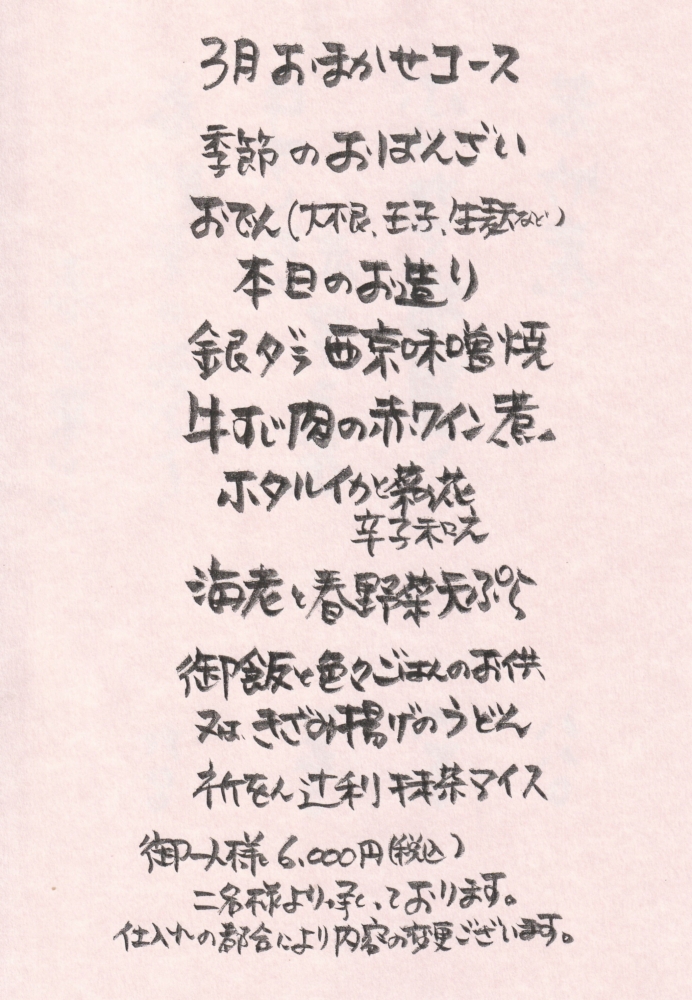 3月おまかせコース
季節のおばんざい
おでん(大根、玉子、生麩など)
本日のお造り
銀ダラ西京味噌焼
牛すじ肉の赤ワイン煮
ホタルイカと菜の花
辛子和え
海老と春野菜天ぷら
御飯と色々ごはんのお供
又は きざみ揚げのうどん
祇をん辻利 抹茶アイス
御一人様 6,000円(税込)
二名様より承っております。
仕入れの都合により内容の変更ございます。